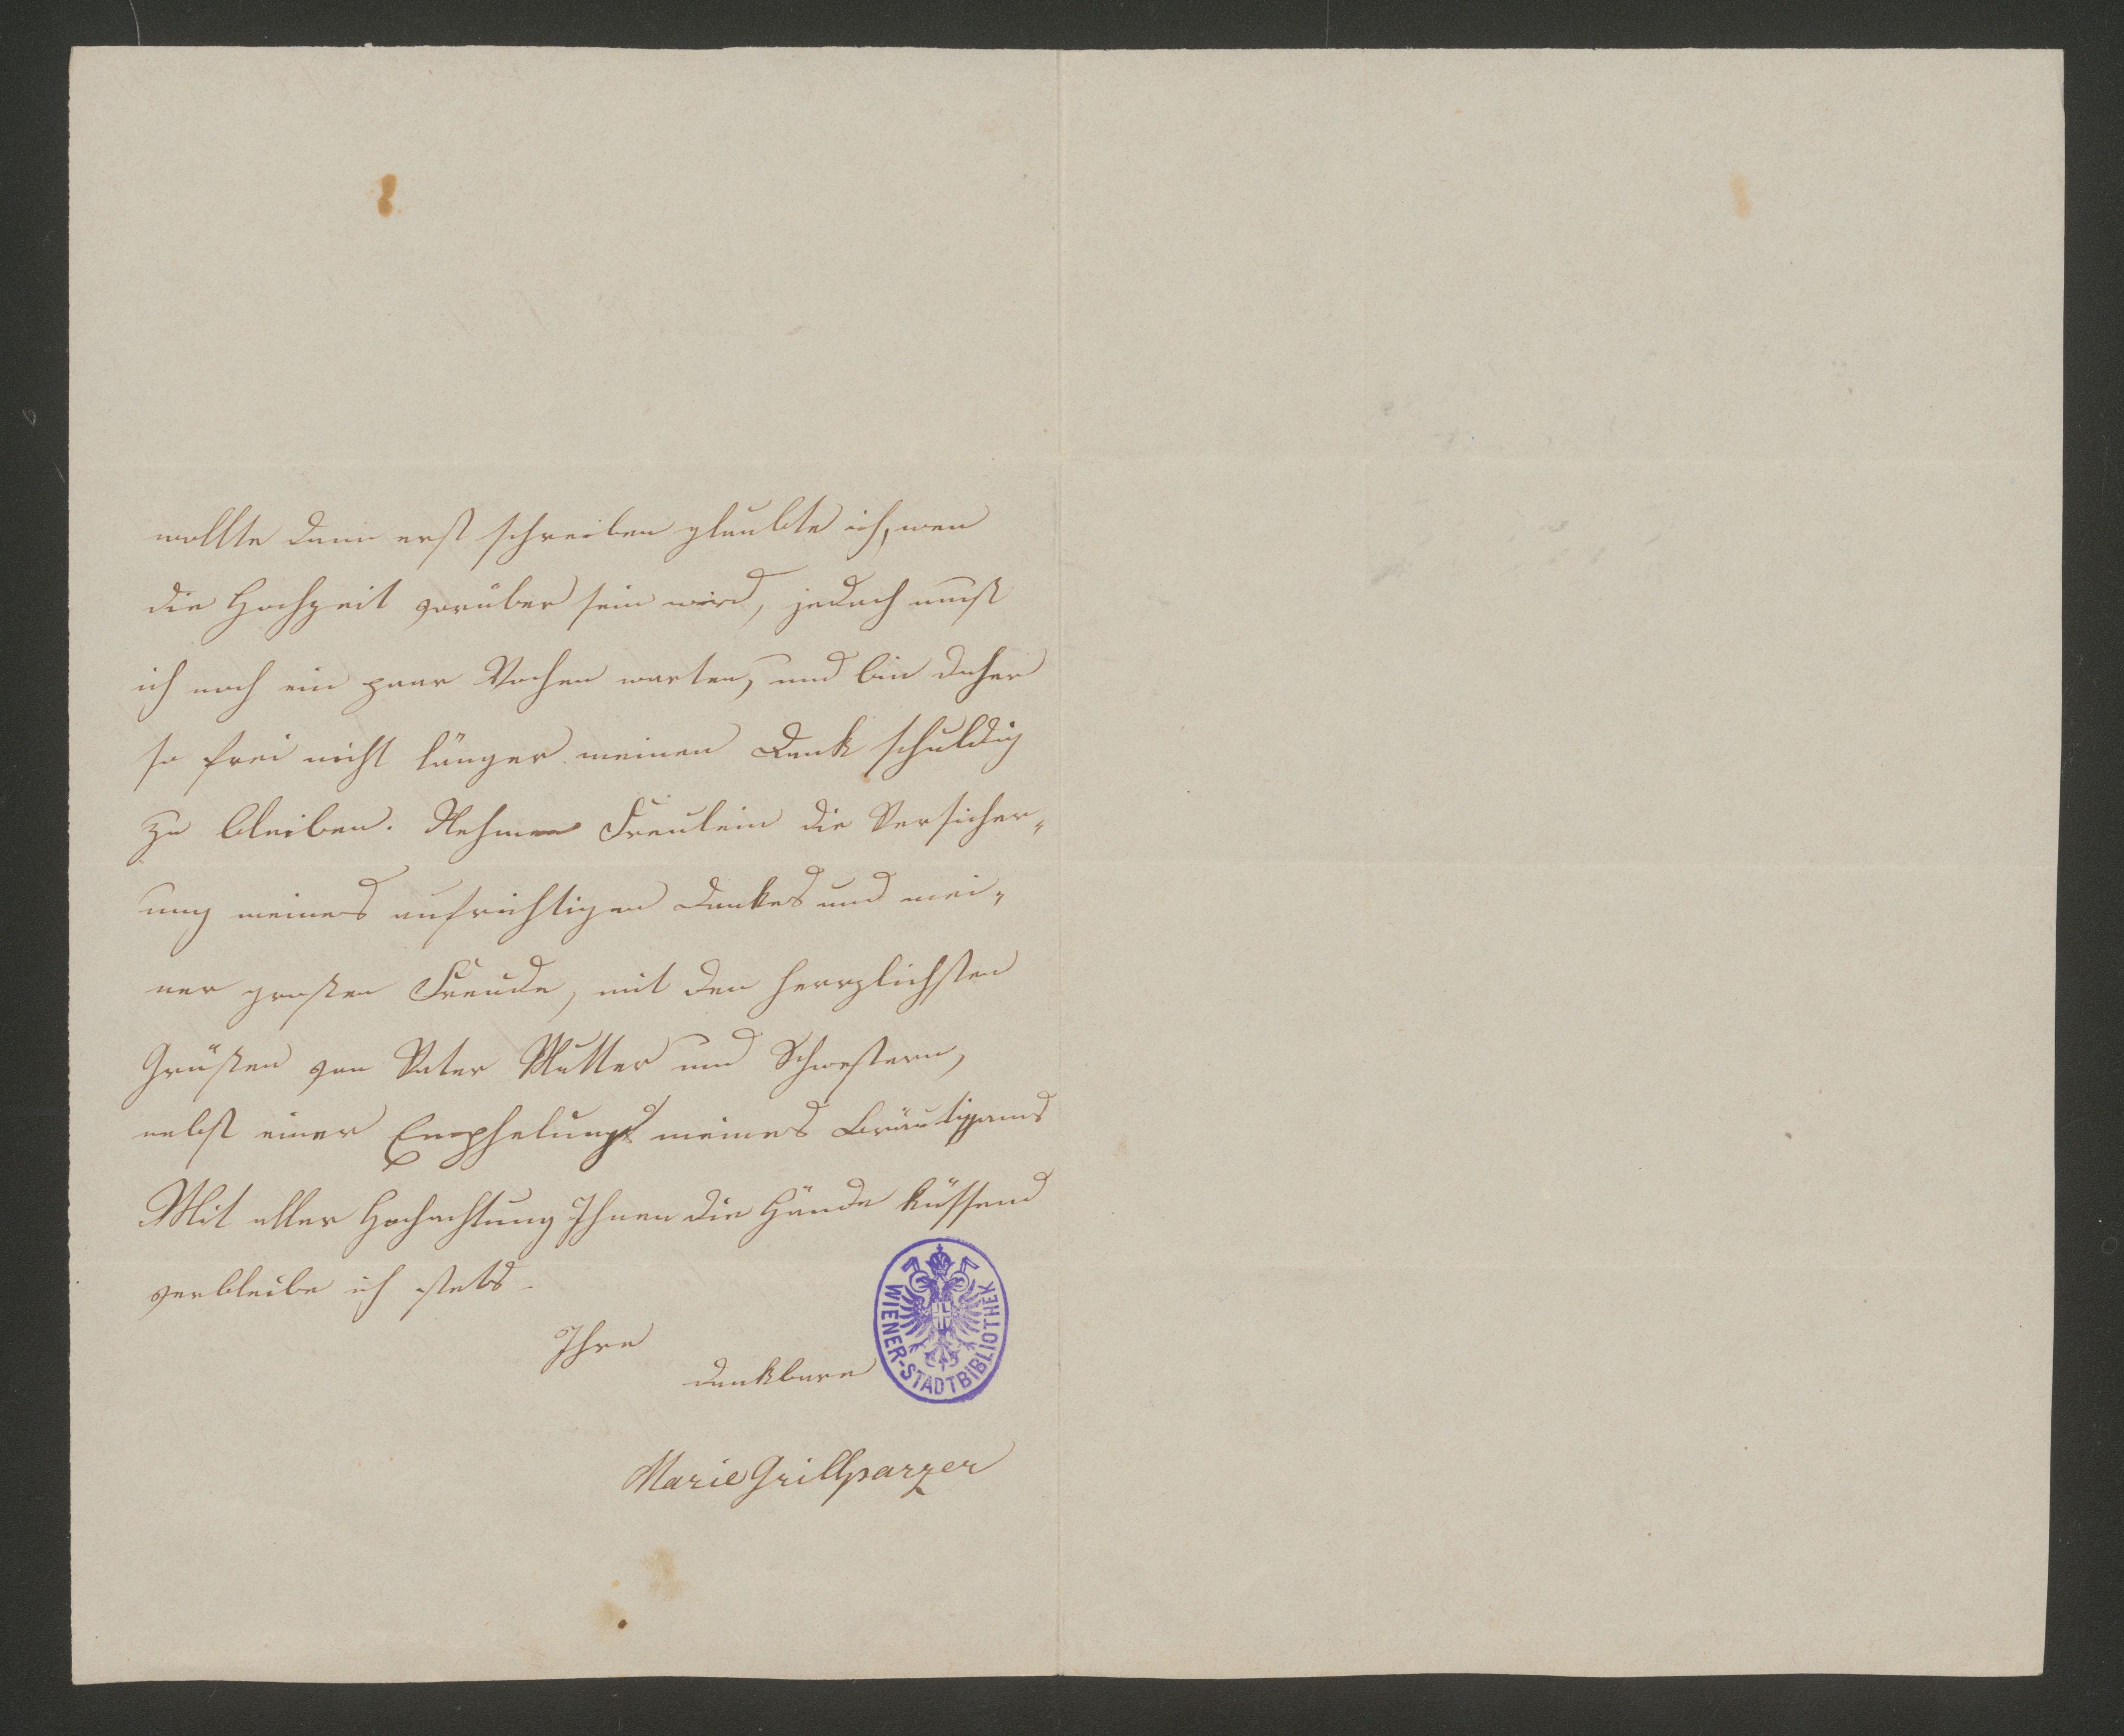 wollte dann erst schreiben glaubte ich, wen
die Hochzeit vorüber sein wird, jedoch muß
ich noch ein paar Wochen warten, und bin daher
so frei nicht länger meinen Dank schuldig
zu bleiben. Nehmen Freulein die Versicher-
ung meines aufrichtigen Dankes und mei-
ner großen Freude, mit den herrzlichsten
Grüßen von Vater Mutter und Schwestern,
nebst einer Emphelung meines Bräutigams
Mit aller Hochachtung Ihnen die Hände küssend
verbleibe ich stets
Ihre
dankbare
Marie Grillparzer
WIENER-STADTBIBLIOTHEK